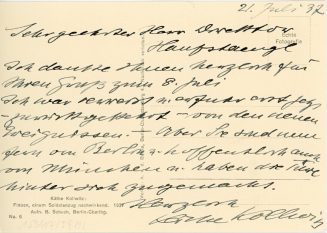 21. Juli 37
Echte
Fotografie
Sehr geehrter Herr Direktor
Hanfstaengl
Ich danke Ihnen herzlich für
Ihren Gruß zum 8. Juli
Ich war verreist u. erfuhr erst jetzt
zurückgekehrt - von den neuen
Ereignissen. - Aber Sie sind nun
fern von Berlin u. hoffentlich auch
von München u. haben die Türe
hinter sich zugemacht.
Käthe Kollwitz:
Frauen, einem Soldatenzug nachwinkend. 1937
Aufn. B. Schuch, Berlin-Charltbg.
No. 6
Herzlich
Käthe Kollwitz